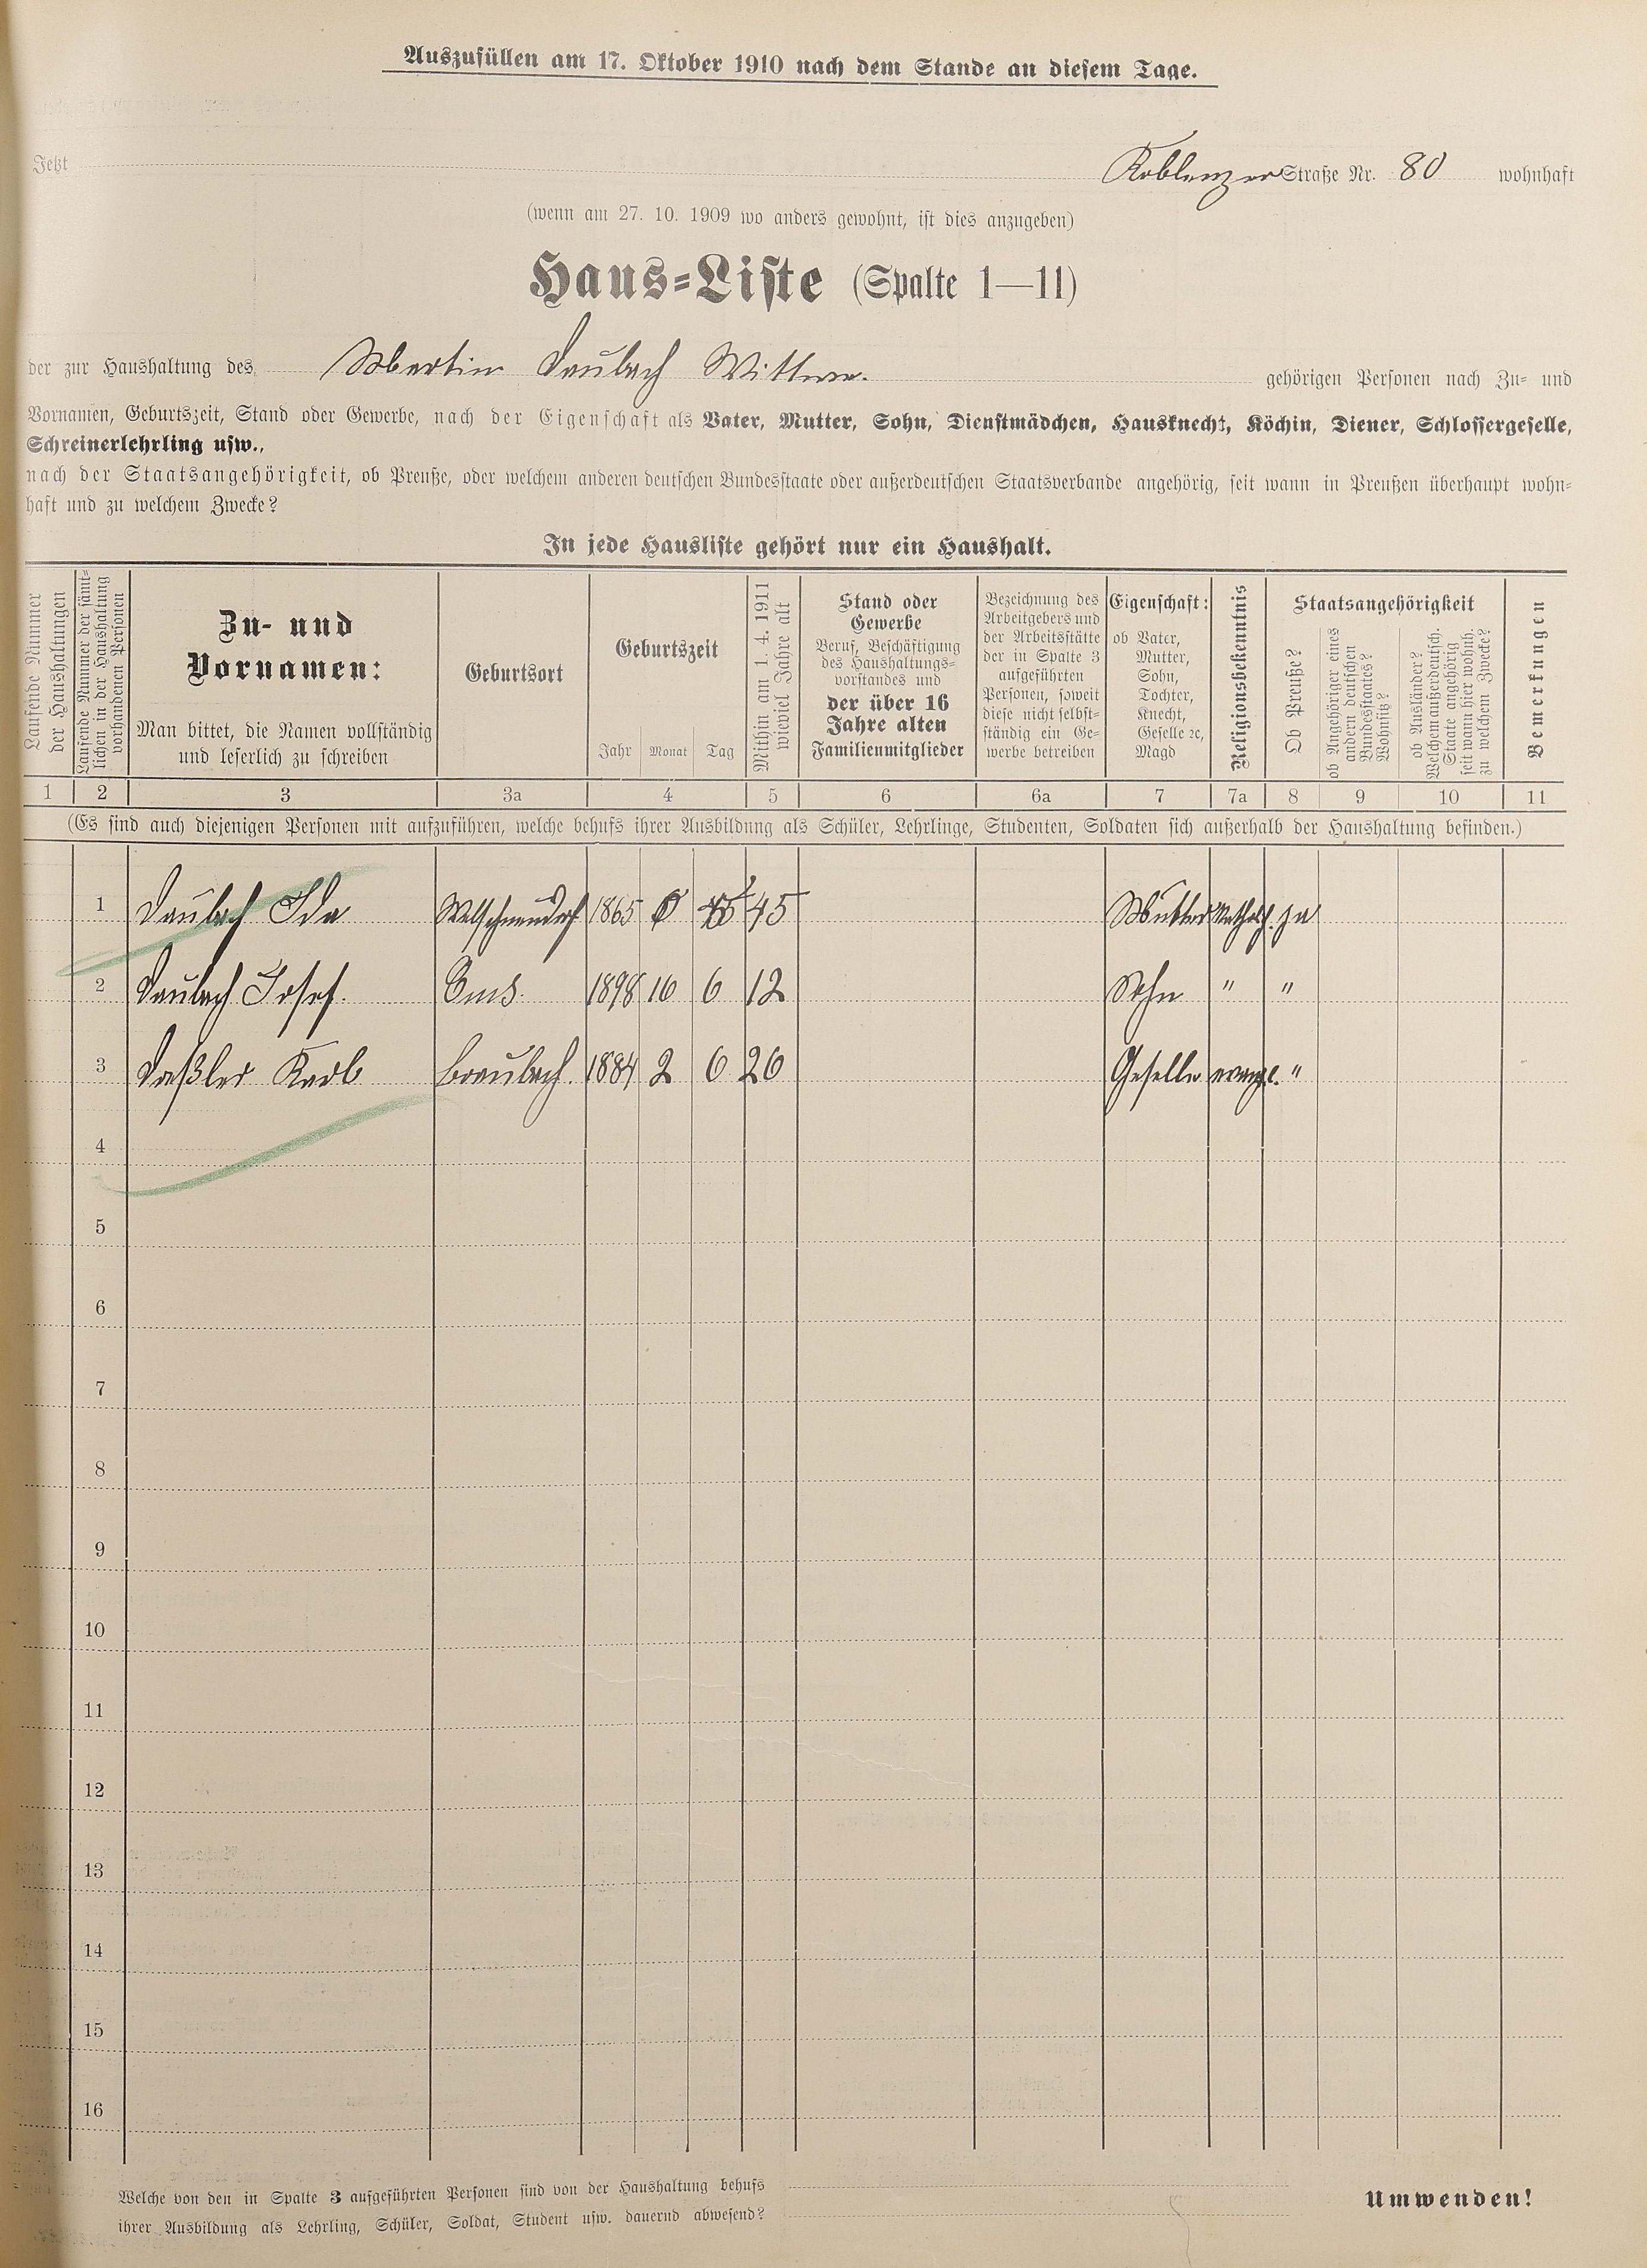 Auszufüllen am 17. Oktober 1910 nach dem Stande an diesem Tage.
Jetzt Koblenzer Straße Nr. 80 wohnhaft
(wenn am 27. 10. 1909 wo anders gewohnt, ist dies anzugeben)
Haus-Liste (Spalte 1—11)
der zur Haushaltung des Martin Daubach Wittwe. gehörigen Personen nach Zu- und
Vornamen, Geburtszeit, Stand oder Gewerbe, nach der Eigenschaft als Vater, Mutter, Sohn, Dienstmädchen, Hausknecht, Köchin, Diener, Schlossergeselle,
Schreinerlehrling usw.,
nach der Staatsangehörigkeit, ob Preuße, oder welchem anderen deutschen Bundesstaate oder außerdeutschen Staatsverbande angehörig, seit wann in Preußen überhaupt wohn-
haft und zu welchem Zwecke?
In jede Hausliste gehört nur ein Haushalt.
Laufende Nummer
der Haushaltungen
Laufende Nummer der sämt-
lichen in der Haushaltung
vorhandenen Personen
Zu- und
Vornamen:
Man bittet, die Namen vollständig
und leserlich zu schreiben
Geburtsort
Geburtszeit
Jahr Monat Tag
Mithin am 1. 4. 1911
wieviel Jahre alt
Stand oder
Gewerbe
Beruf, Beschäftigung
des Haushaltungs-
vorstandes und
der über 16
Jahre alten
Familienmitglieder
Bezeichnung des
Arbeitgebers und
der Arbeitsstätte
der in Spalte 3
aufgeführten
Personen, soweit
diese nicht selbst-
ständig ein Ge-
werbe betreiben
Eigenschaft:
ob Vater,
Mutter,
Sohn,
Tochter,
Knecht,
Geselle ꝛc,
Magd
Religionsbekenntnis
Staatsangehörigkeit
Ob Preuße?
ob Angehöriger eines
andern deutschen
Bundesstaates?
Wohnsitz?
ob Ausländer?
Welchem außerdeutsch.
Staate angehörig
seit wann hier wohnh.
zu welchen Zwecke?
Bemerkungen
1 2 3 3a 4 5 6 6a 7 7a 8 9 10 11
(Es sind auch diejenigen Personen mit aufzuführen, welche behufs ihrer Ausbildung als Schüler, Lehrlinge, Studenten, Soldaten sich außerhalb der Haushaltung befinden.)
1 Daubach Ida Welschneudorf 1865 45 Mutter Kathol. ja
2 Daubach Josef. Ems. 1898 10 6 12 Sohn " "
3 Daßler Karl Braubach. 1884 2 6 26 Geselle evangl. "
4
5
6
7
8
9
10
11
12
13
14
15
16
Welche von den in Spalte 3 aufgeführten Personen sind von der Haushaltung behufs
ihrer Ausbildung als Lehrling, Schüler, Soldat, Student usw. dauernd abwesend?
Umwenden!